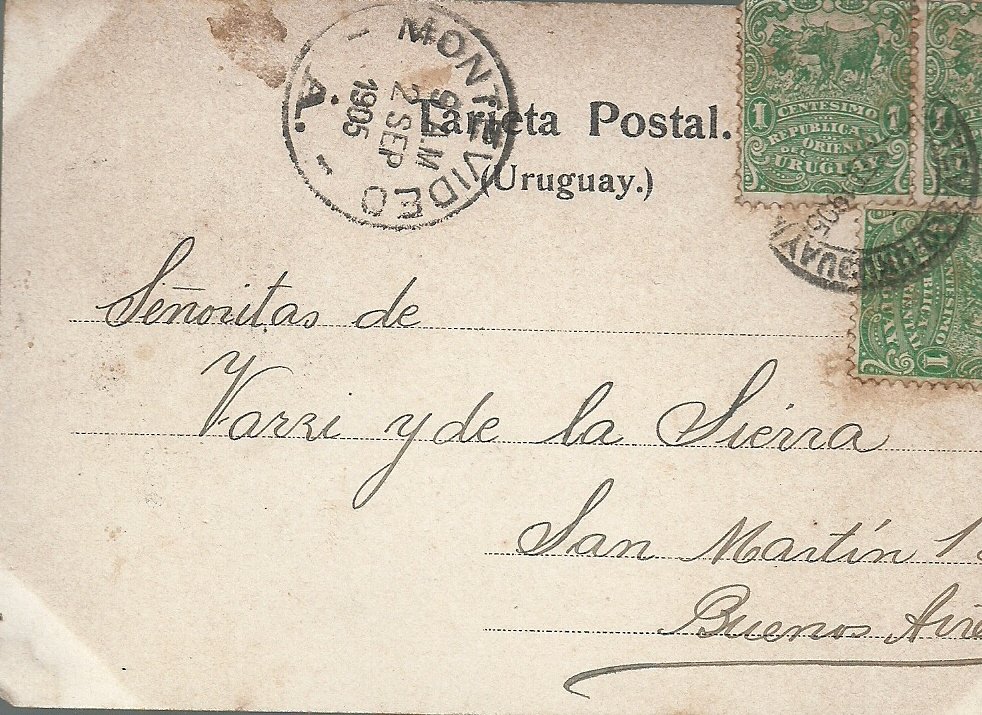 MONTEVIDEO
9 A.M
2 SEP
1905
A.
Tarjeta Postal.
(Uruguay.)
1 CENTESIMO 1
REPUBLICA
ORIENTAL
DEL
URUGUAY
URUGUAY
1905
1
CENTESIMO
REPUBLICA
Señoritas de
Varzi y de la Sierra
San Martín 1
Buenos Aire